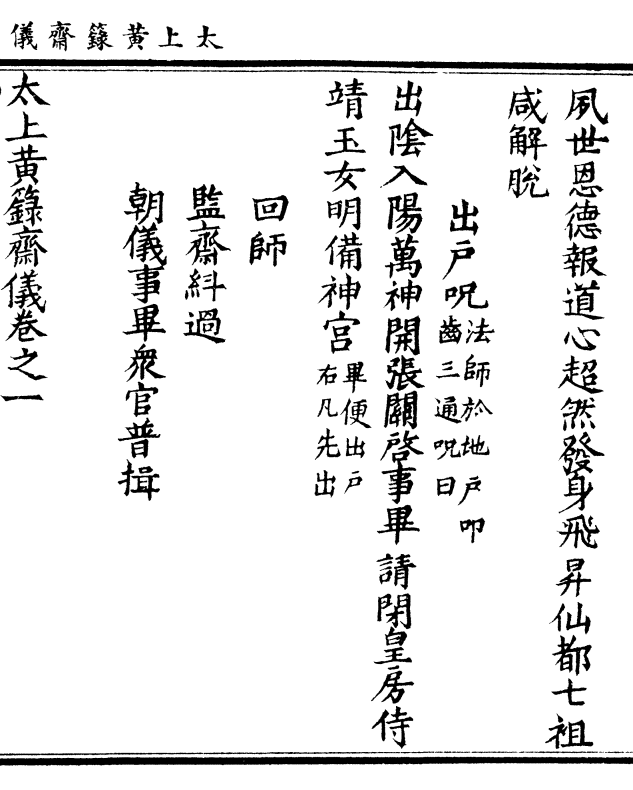 太上黃籙齋儀
夙世恩德報道心超然發身飛昇仙都七祖
咸解脫
出戶呪法師於地戶叩
齒三通呪曰
出陰入陽萬神開張關啓事畢請閉皇房侍
靖玉女明備神宮畢便出戶
右凡先出
回師
監齋糾過
朝儀事畢衆官普揖
太上黃籙齋儀卷之一